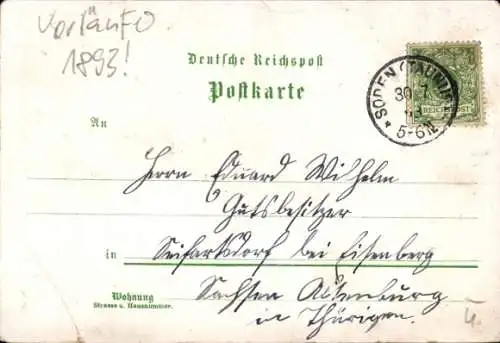 Vorläufo
1893!
Deutsche Reichspost
Postkarte
SODEN (TAUNUS)
30 7
93
5-6N
REICHSPOST
An
Herrn Eduard Wilhelm
Gutsbesitzer
in Seifartsdorf bei Eisenberg
Sachsen Altenburg
in Thürigen.
Wohnung
Strasse u. Hausnummer.
4.